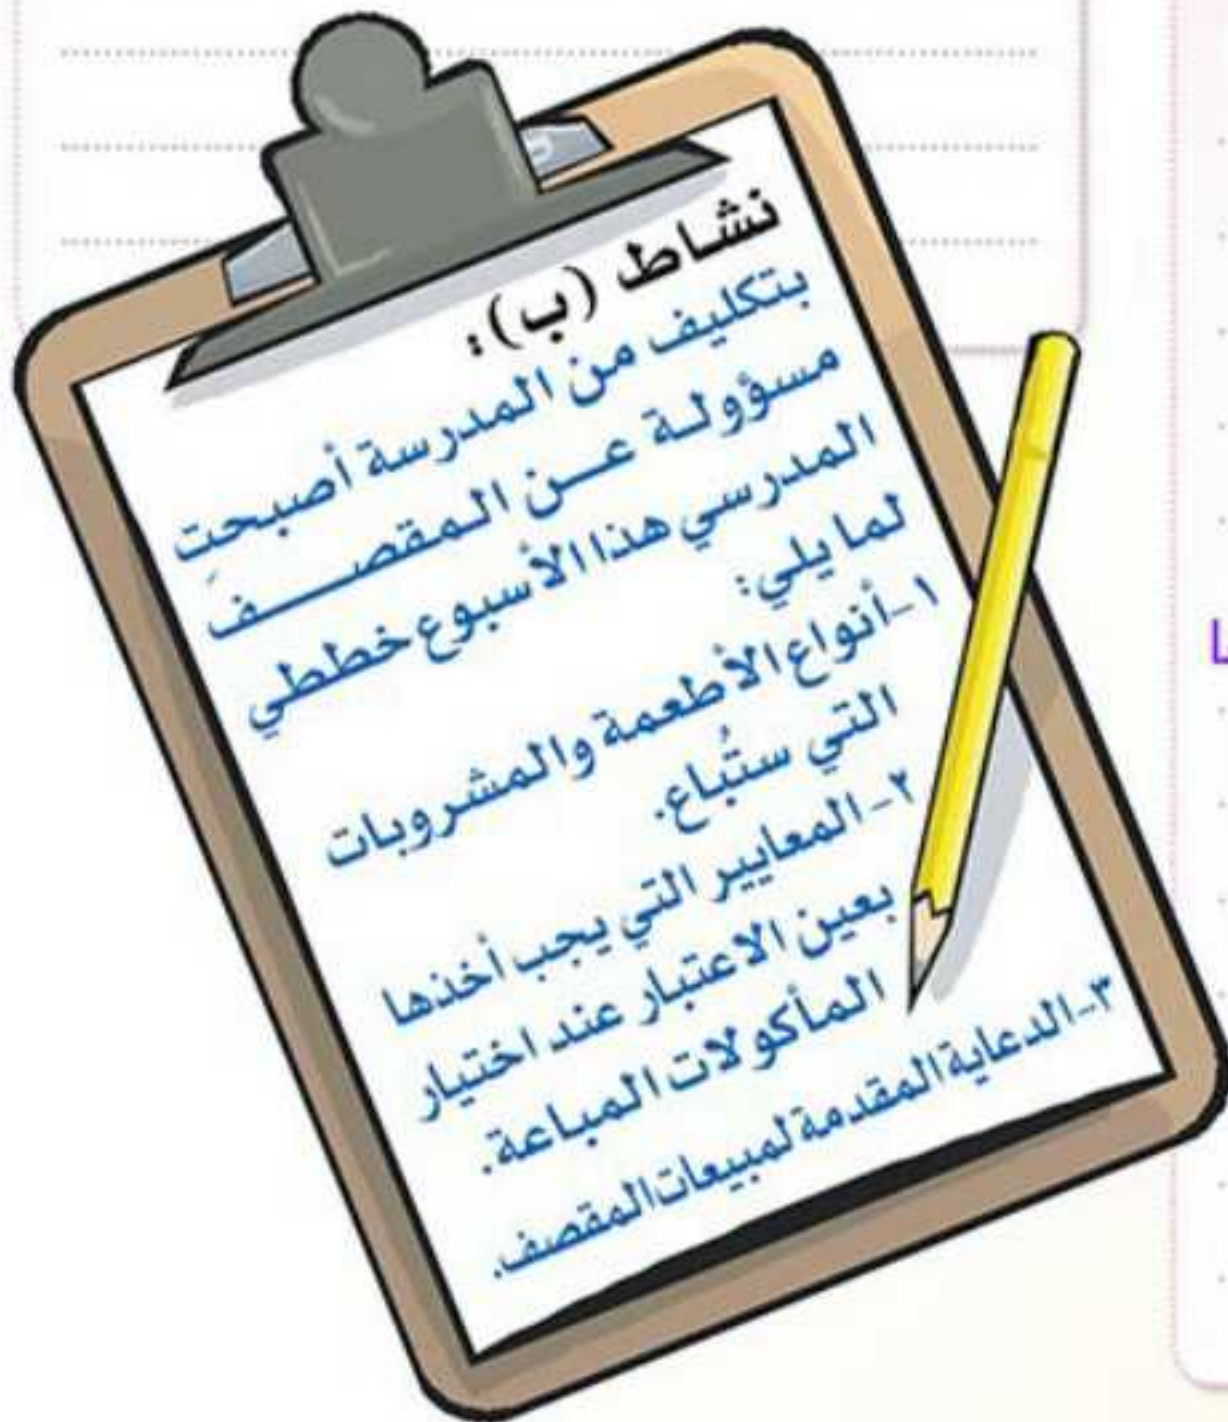 نشاط (ب):
بتكليف من المدرسة أصبحتِ
مسؤولة عن المقصف
المدرسي هذا الأسبوع خططي
لما يلي:
١-أنواع الأطعمة والمشروبات
التي ستُباع.
٢- المعايير التي يجب أخذها
بعين الاعتبار عند اختيار
المأكولات المباعة.
٣-الدعاية المقدمة لمبيعات المقصف.